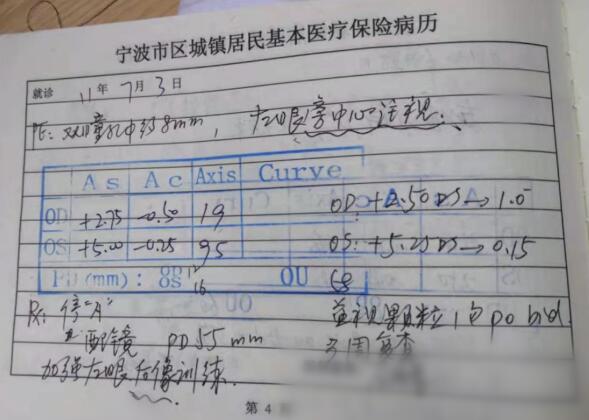 宁波市区城镇居民基本医疗保险病历
就诊 11年7月3日
PE: 双瞳孔中约8mm, 左眼旁中心注视.
As Ac Axis Curve
OD +2.75 -0.50 19 OD: +2.50 DS → 1.0
OS +5.00 -0.25 95 OS: +5.25 DS → 0.15
PD(mm): OD 12 OU 68
OS 16
Rx: 停"A" 1包 po bid.
配镜 PD 55 mm 3周复查
加强左眼后像训练.
第 4